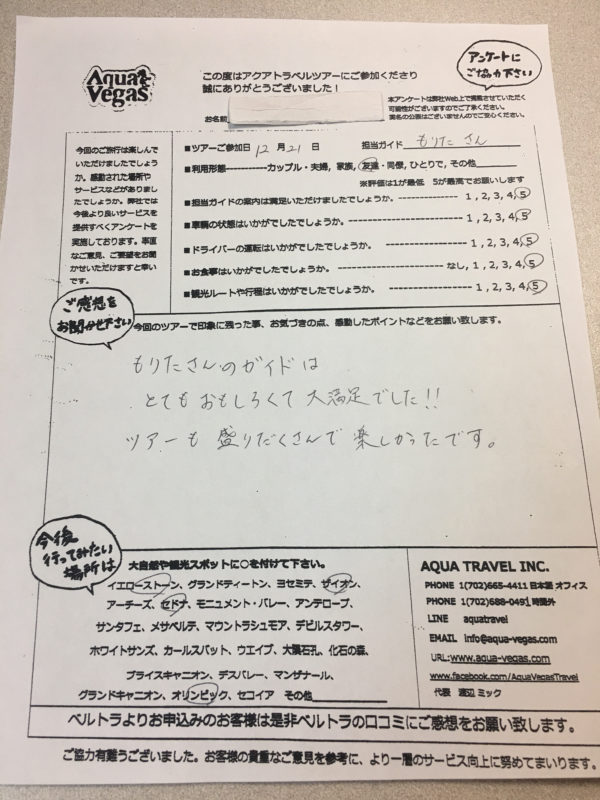 Aqua
Vegas
この度はアクアトラベルツアーにご参加くださり
誠にありがとうございました！
アンケートに
ご協力下さい
お名前
本アンケートは弊社Web上で掲載させていただく
可能性がございますのでご了承ください。
実名の公表はございませんのでご安心ください。
今回のご旅行は楽しんで
いただけましたでしょう
か。感動された場所や
サービスなどがありまし
たでしょうか。弊社では
今後より良いサービスを
提供すべくアンケートを
実施しております。率直
なご意見、ご要望をお聞
かせいただけますと幸い
です。
■ツアーご参加日 12 月 21 日 担当ガイド もりた さん
■利用形態----------カップル・夫婦, 家族, 友達・同僚, ひとりで, その他
※評価は1が最低 5が最高でお願いします
■担当ガイドの案内は満足いただけましたでしょうか。 ---------------- 1 , 2 , 3 , 4, 5
■車輌の状態はいかがでしたでしょうか。------------------------- 1 , 2 , 3 , 4, 5
■ドライバーの運転はいかがでしたでしょうか。 ------------------- 1 , 2 , 3 , 4, 5
■お食事はいかがでしたでしょうか。 ----------------------- なし, 1 , 2 , 3, 4, 5
■観光ルートや行程はいかがでしたでしょうか。 ------------------- 1 , 2 , 3 , 4, 5
ご感想を
お聞かせ下さい
今回のツアーで印象に残った事、お気づきの点、感動したポイントなどをお願い致します。
もりたさんのガイドは
とてもおもしろくて大満足でした!!
ツアーも盛りだくさんで楽しかったです。
今後
行ってみたい
場所は
大自然や観光スポットに○を付けて下さい。
イエローストーン、グランドティートン、ヨセミテ、ザイオン、
アーチーズ、セドナ、モニュメント・バレー、アンテロープ、
サンタフェ、メサベルテ、マウントラシュモア、デビルスタワー、
ホワイトサンズ、カールスバット、ウエイブ、大隕石孔、化石の森、
ブライスキャニオン、デスバレー、マンザナール、
グランドキャニオン、オリンピック、セコイア その他
AQUA TRAVEL INC.
PHONE 1(702)665-4411 日本語 オフィス
PHONE 1(702)688-0491 時間外
LINE aquatravel
EMAIL info@aqua-vegas.com
URL:www.aqua-vegas.com
www.facebook.com/AquaVegasTravel
代表 渡辺 ミック
ベルトラよりお申込みのお客様は是非ベルトラの口コミにご感想をお願い致します。
ご協力有難うございました。お客様の貴重なご意見を参考に、より一層のサービス向上に努めてまいります。